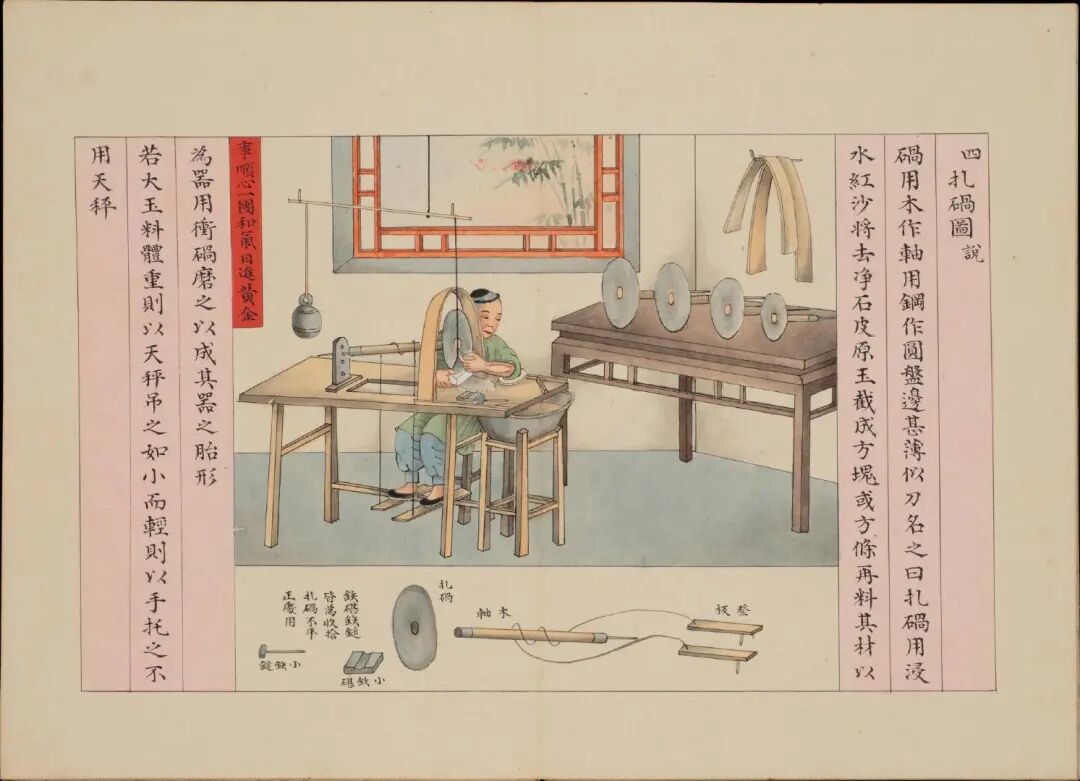 四扎碢圖說
碢用木作軸用鋼作圓盤邊甚薄似刀名之曰扎碢用浸
水紅沙將去净石皮原玉截成方塊或方條再料其材以
為器用衝碢磨之以成其器之胎形
若大玉料體重則以天秤吊之如小而輕則以手托之不
用天秤
事順心一團和氣日進黃金
登板
木軸
扎碢
鐵碪鐵鎚
皆為收拾
扎碢不平
正處用
小鐵碪
小鐵鎚